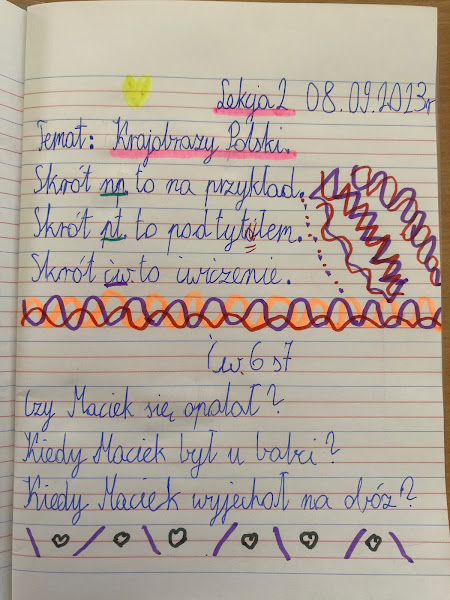 Lekcja 2 08.09.2023r
Temat: Krajobrazy Polski.
Skrót np. to na przykład.
Skrót pt. to pod tytułem.
Skrót ćw. to ćwiczenie.
Ćw. 6 s7
Czy Maciek się opalał?
Kiedy Maciek był u babci?
Kiedy Maciek wyjechał na obóz?